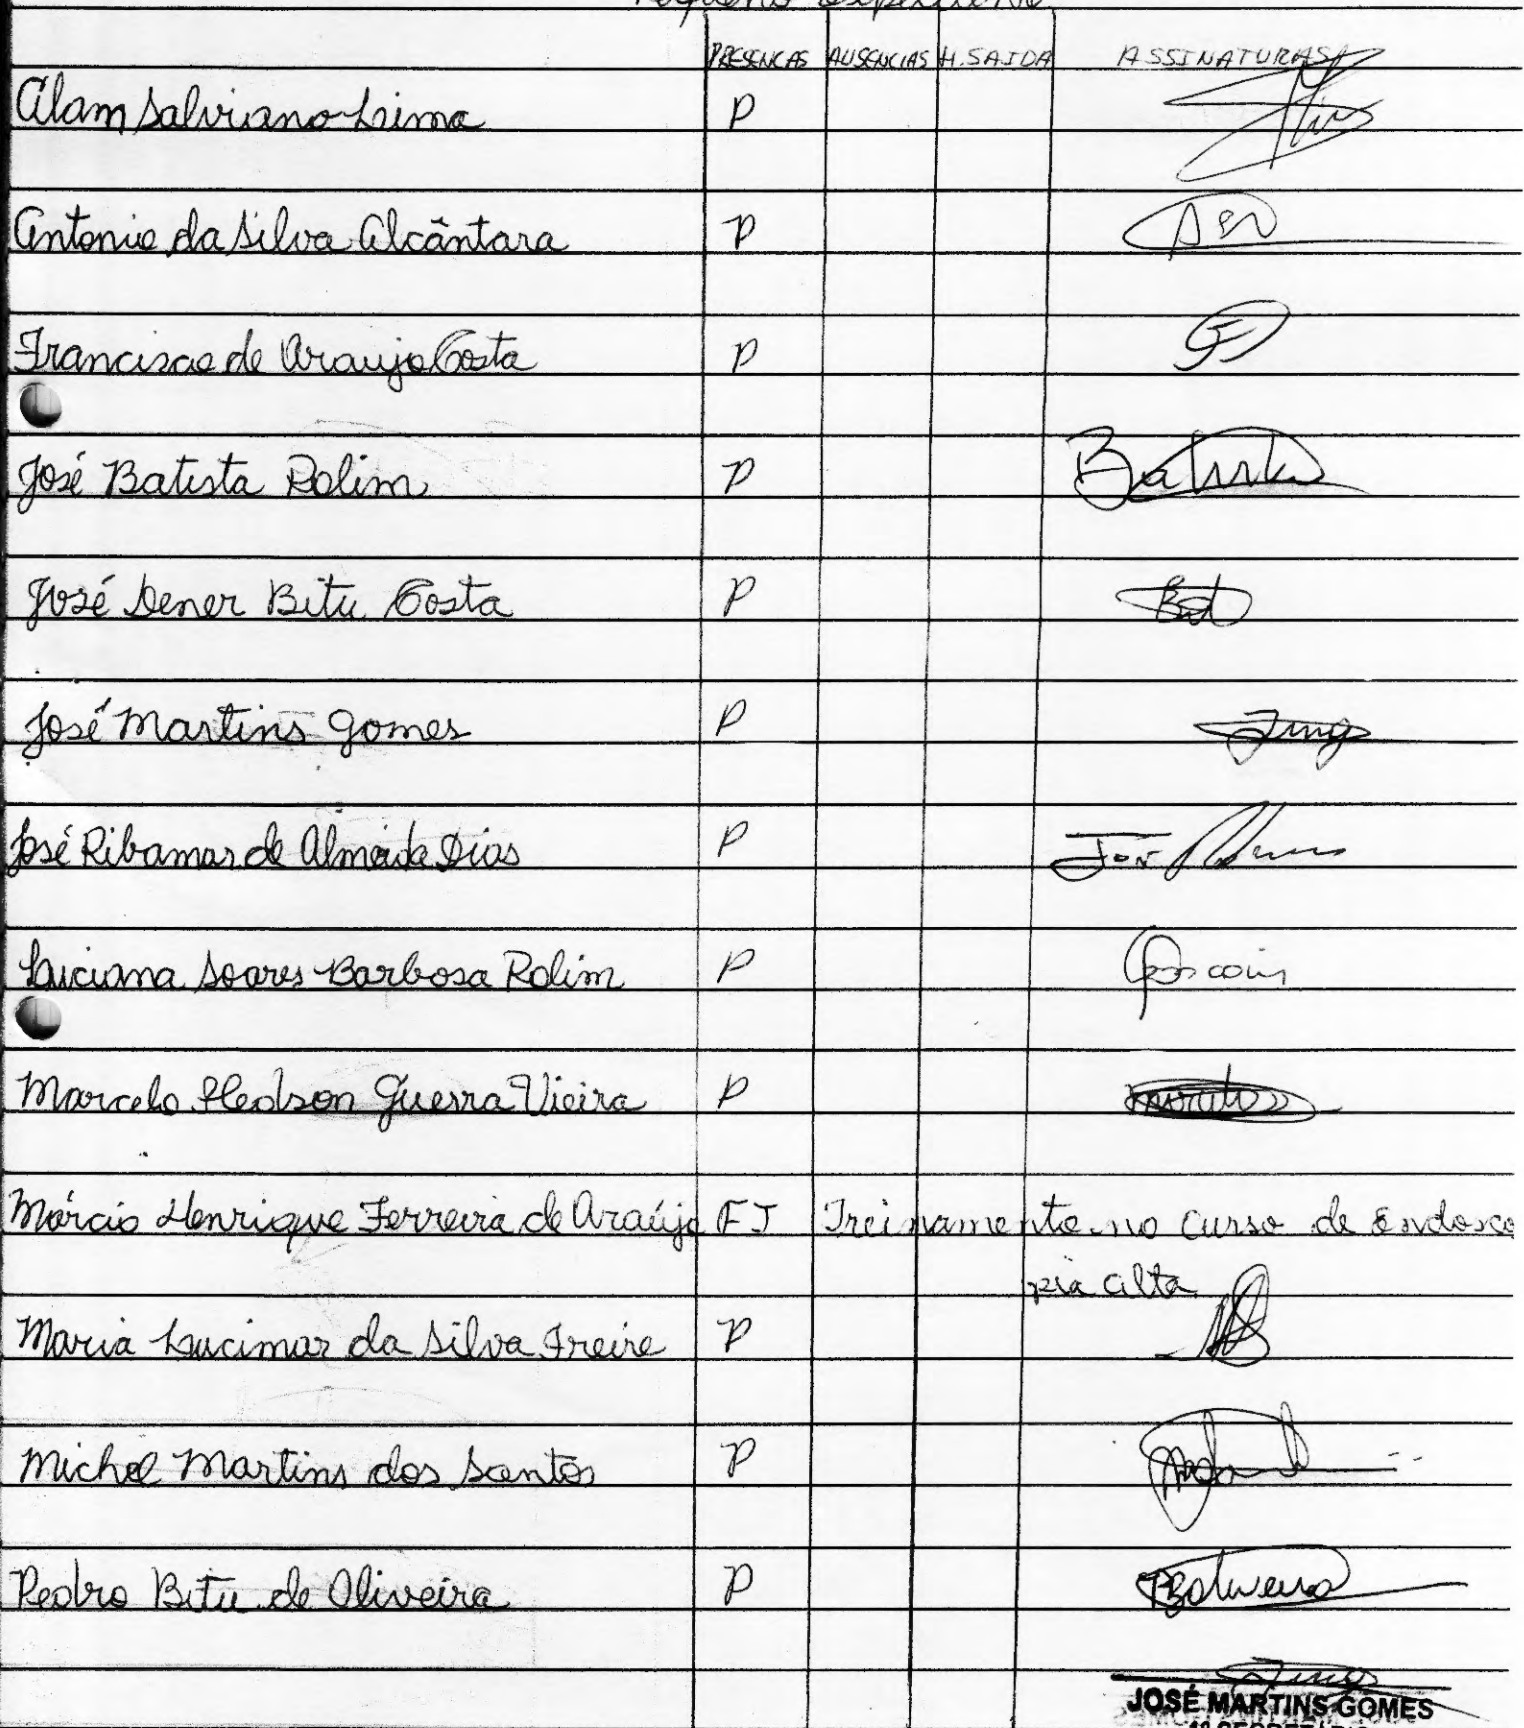 Pequeno Expediente
PRESENCAS AUSENCIAS H. SAIDA ASSINATURAS
Alam Salviano Lima P
Antonio da Silva Alcântara P
Francisco de Araujo Costa P
José Batista Rolim P Batista
José Dener Bitu Costa P
José Martins Gomes P
José Ribamar de Almeida Dias P José
Luciana Soares Barbosa Rolim P
Marcelo Hedson Guerra Vieira P
Márcio Henrique Ferreira de Araújo FJ Treinamento no Curso de Endosco
pia alta
Maria Lucimar da Silva Freire P
Michel Martins dos Santos P
Pedro Bitu de Oliveira P
JOSÉ MARTINS GOMES
1º SECRETÁRIO